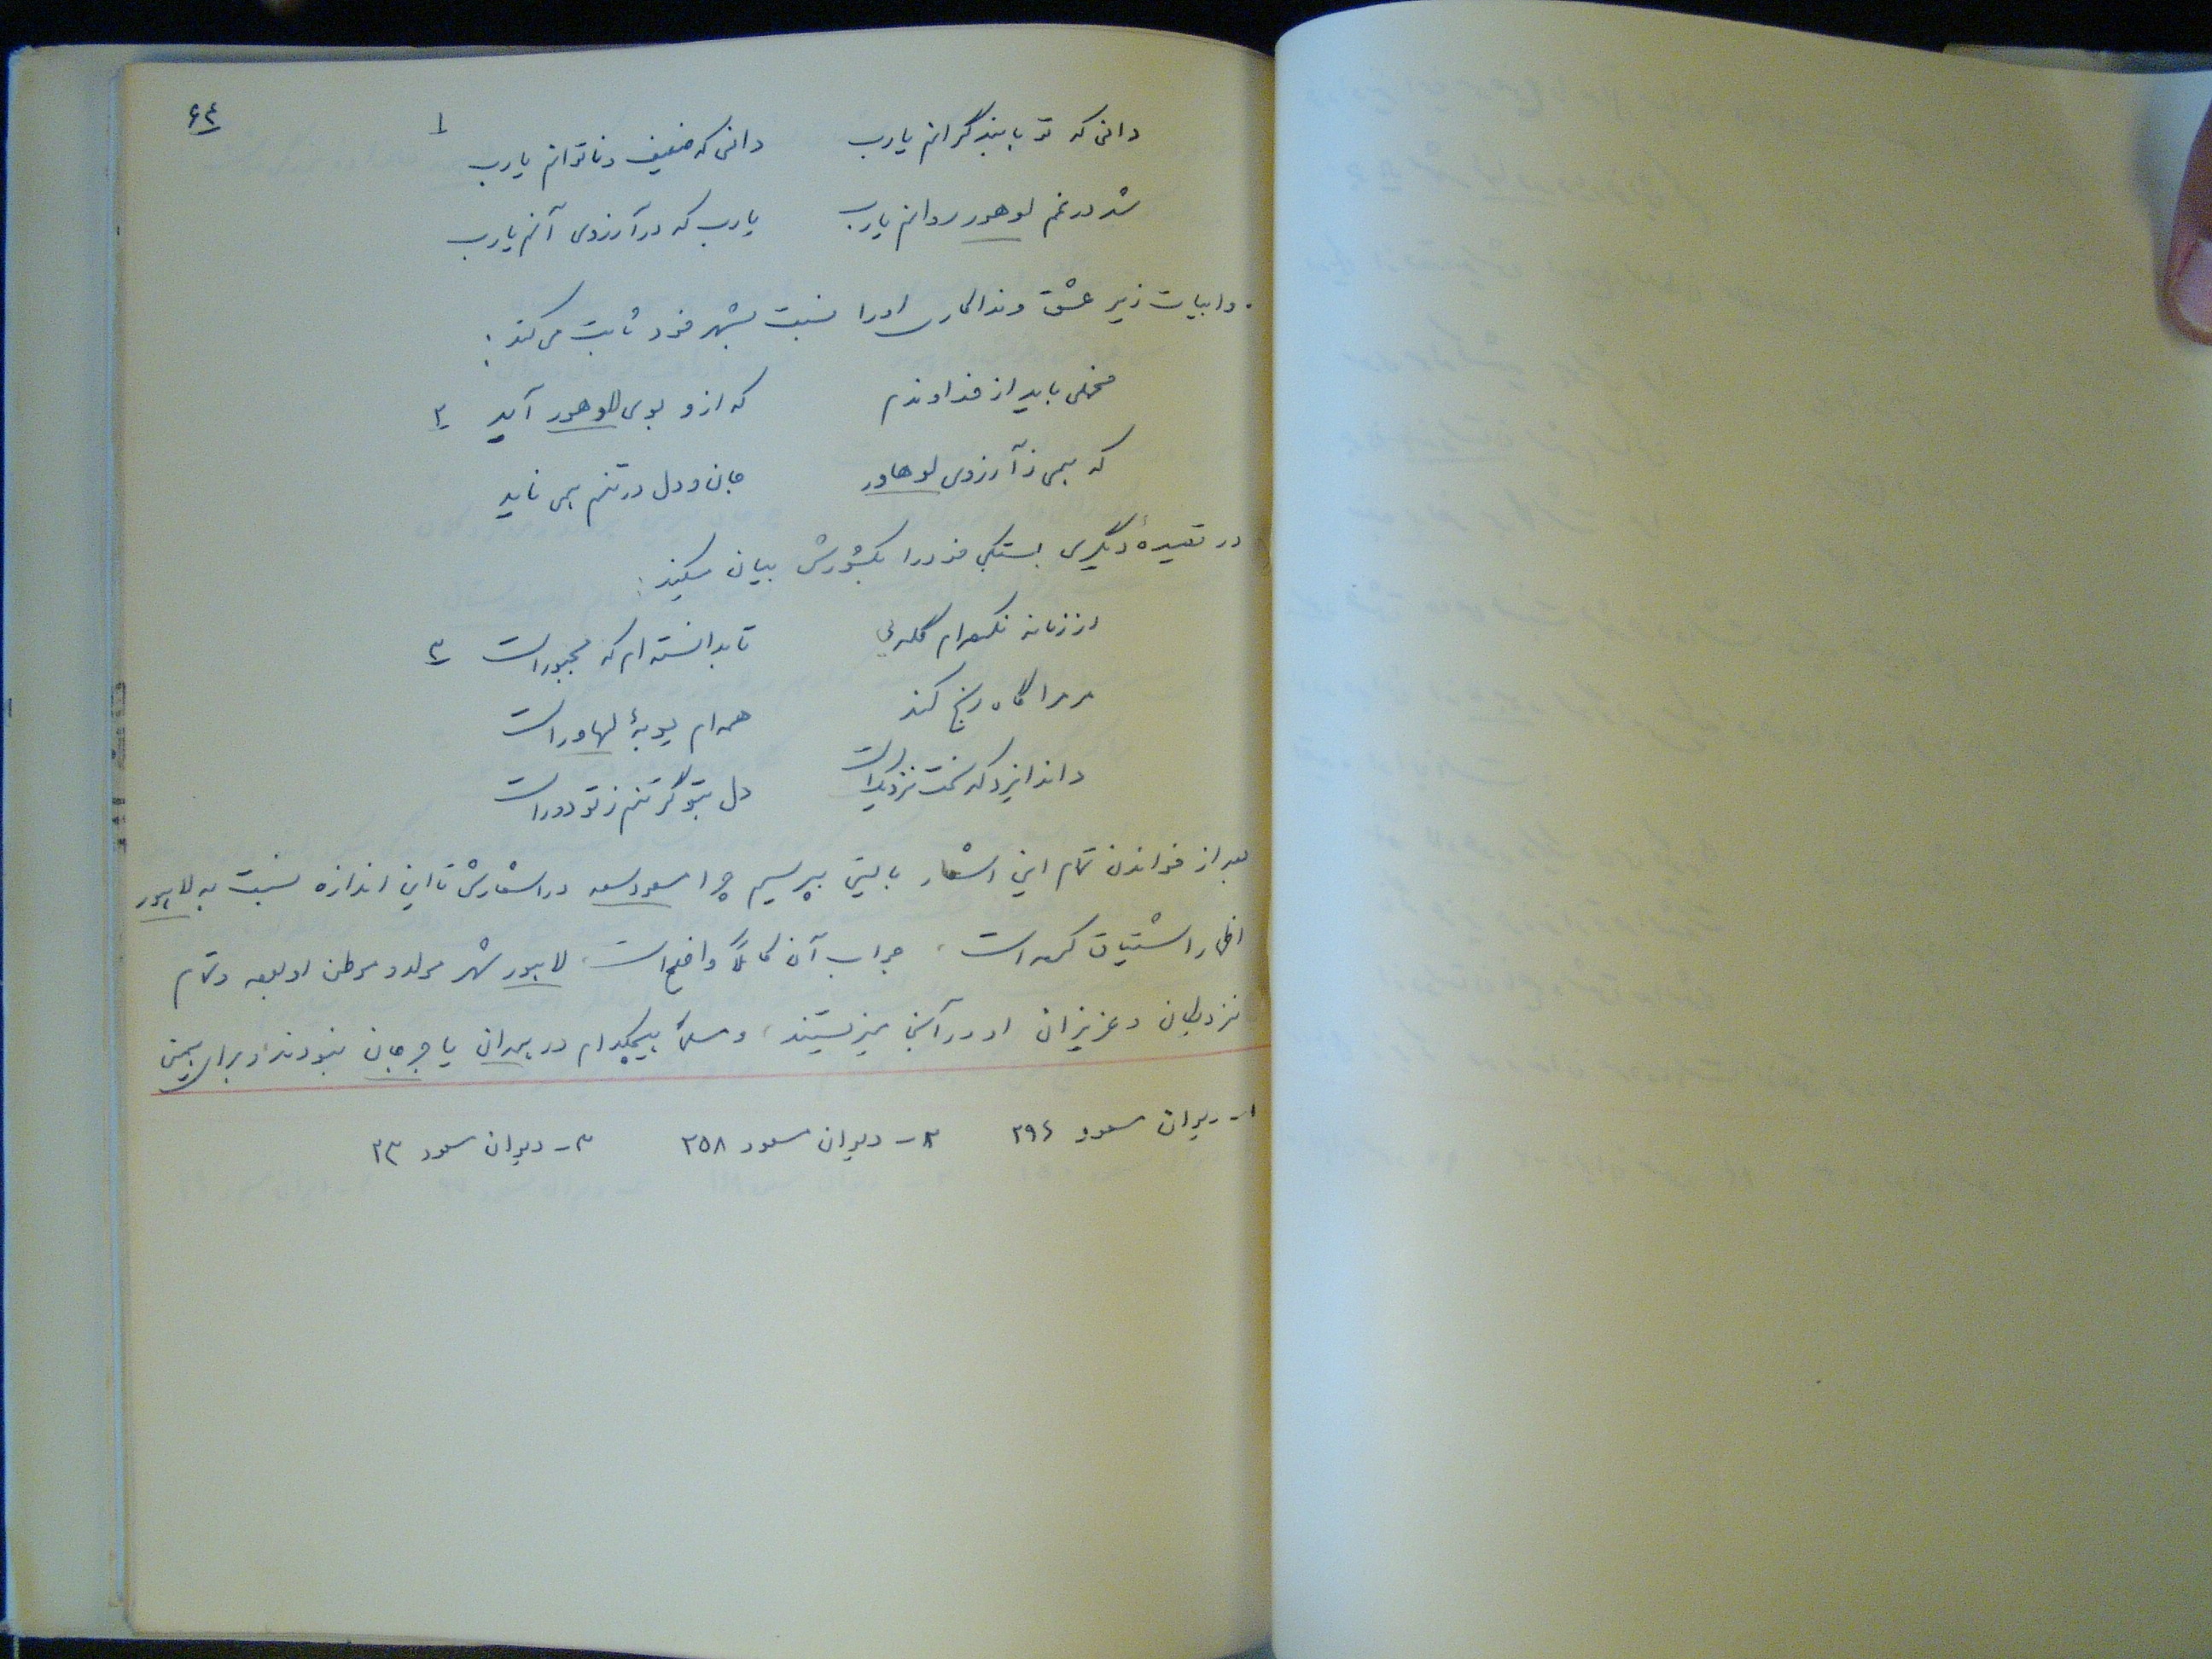 ۶۴
دانی که تو بابند گرانم یارب دانی که ضعیف و ناتوانم یارب ۱
شد در غم لوهور روانم یارب یارب که در آرزوی آنم یارب
. وابیات زیر عشق و فداکاری اورا نسبت بشهر خود ثابت می کند :
مخملی باید از خداوندم که ازو بوی لوهور آید ۲
که همی ز آرزوی لوهاور جان و دل در تنم همی ناید
در قصیدهٔ دیگری بستگی خود را بکشورش بیان میکند :
از زمانه نکرده ام گله ئی تا بدانسته ام که مجبور است ۳
مر مرا گاه رنج کند همه ام پویهٔ لهاور است
داند ایزد که سخت نزدیک است دل بتو گر تنم ز تو دور است
بعد از خواندن تمام این اشعار بایستی بپرسیم چرا مسعود سعد در اشعارش تا این اندازه نسبت به لاهور
اظهار اشتیاق کرده است ، جواب آن کاملاً واضح است ، لاهور شهر مولد و موطن او بوده و تمام
نزدیکان و عزیزان او در آن میزیستند ، و مسلماً هیچکدام در همدان یا جرجان نبودند و برای همین
۱ـ دیوان مسعود ۲۹۶ ۲ـ دیوان مسعود ۲۵۸ ۳ـ دیوان مسعود ۲۳